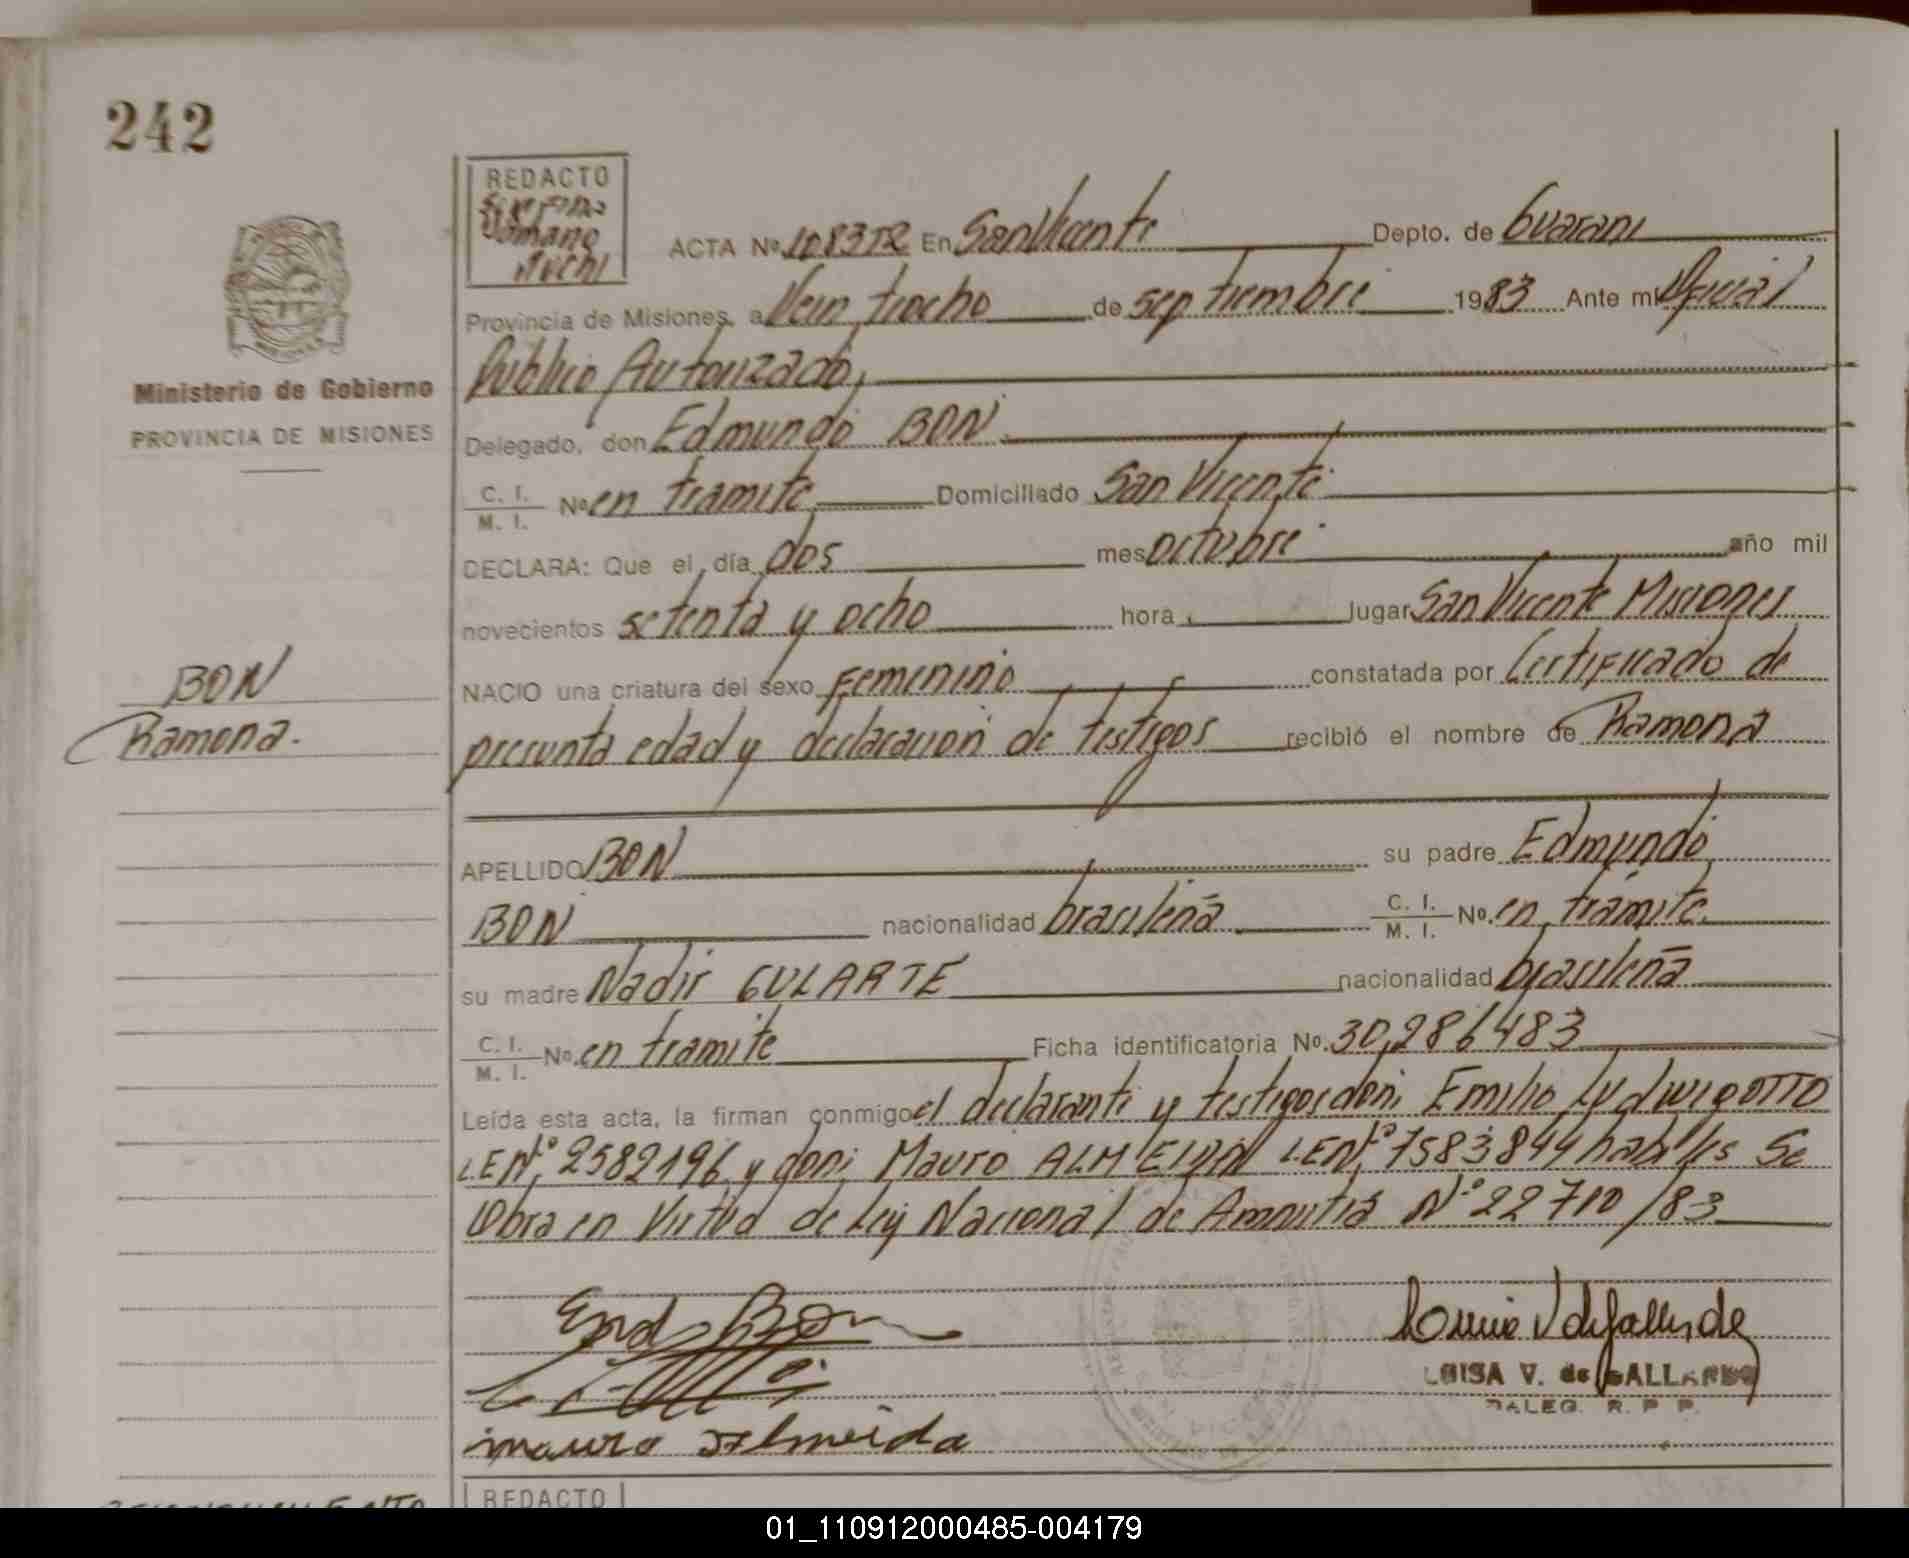 242
REDACTO
ACTA Nº 108352 En San Vicente Depto. de Guarani
Provincia de Misiones, a Vein tiocho de septiembre 1983 Ante mi Oficial
Publico Autorizado,
Ministerio de Gobierno
PROVINCIA DE MISIONES
Delegado, don Edmundo BON
C. I. / M. I. Nº en tramite Domiciliado San Vicente
DECLARA: Que el día dos mes octubre año mil
novecientos setenta y ocho hora lugar San Vicente Misiones
BON
Ramona.
NACIO una criatura del sexo Femenino constatada por Certificado de
presunta edad y declaracion de testigos recibió el nombre de Ramona
APELLIDO BON su padre Edmundo
BON nacionalidad brasileña C. I. / M. I. Nº. en tramite.
su madre Nadir GULARTE nacionalidad brasileña
C. I. / M. I. Nº. en tramite Ficha identificatoria Nº. 30,286483
Leída esta acta, la firman conmigo el declarante y testigos don; Emilio Lydwig OTTO
L.E.Nº; 2582196 y don; Mauro ALMEIDA L.E.Nº; 7583844 habiles Se
Obra en Virtud de Ley Nacional de Amnistia Nº 22710/83
mauro Almeida
LUISA V. de GALLARDO
DALEG. R. P. P.
REDACTO
01_110912000485-004179